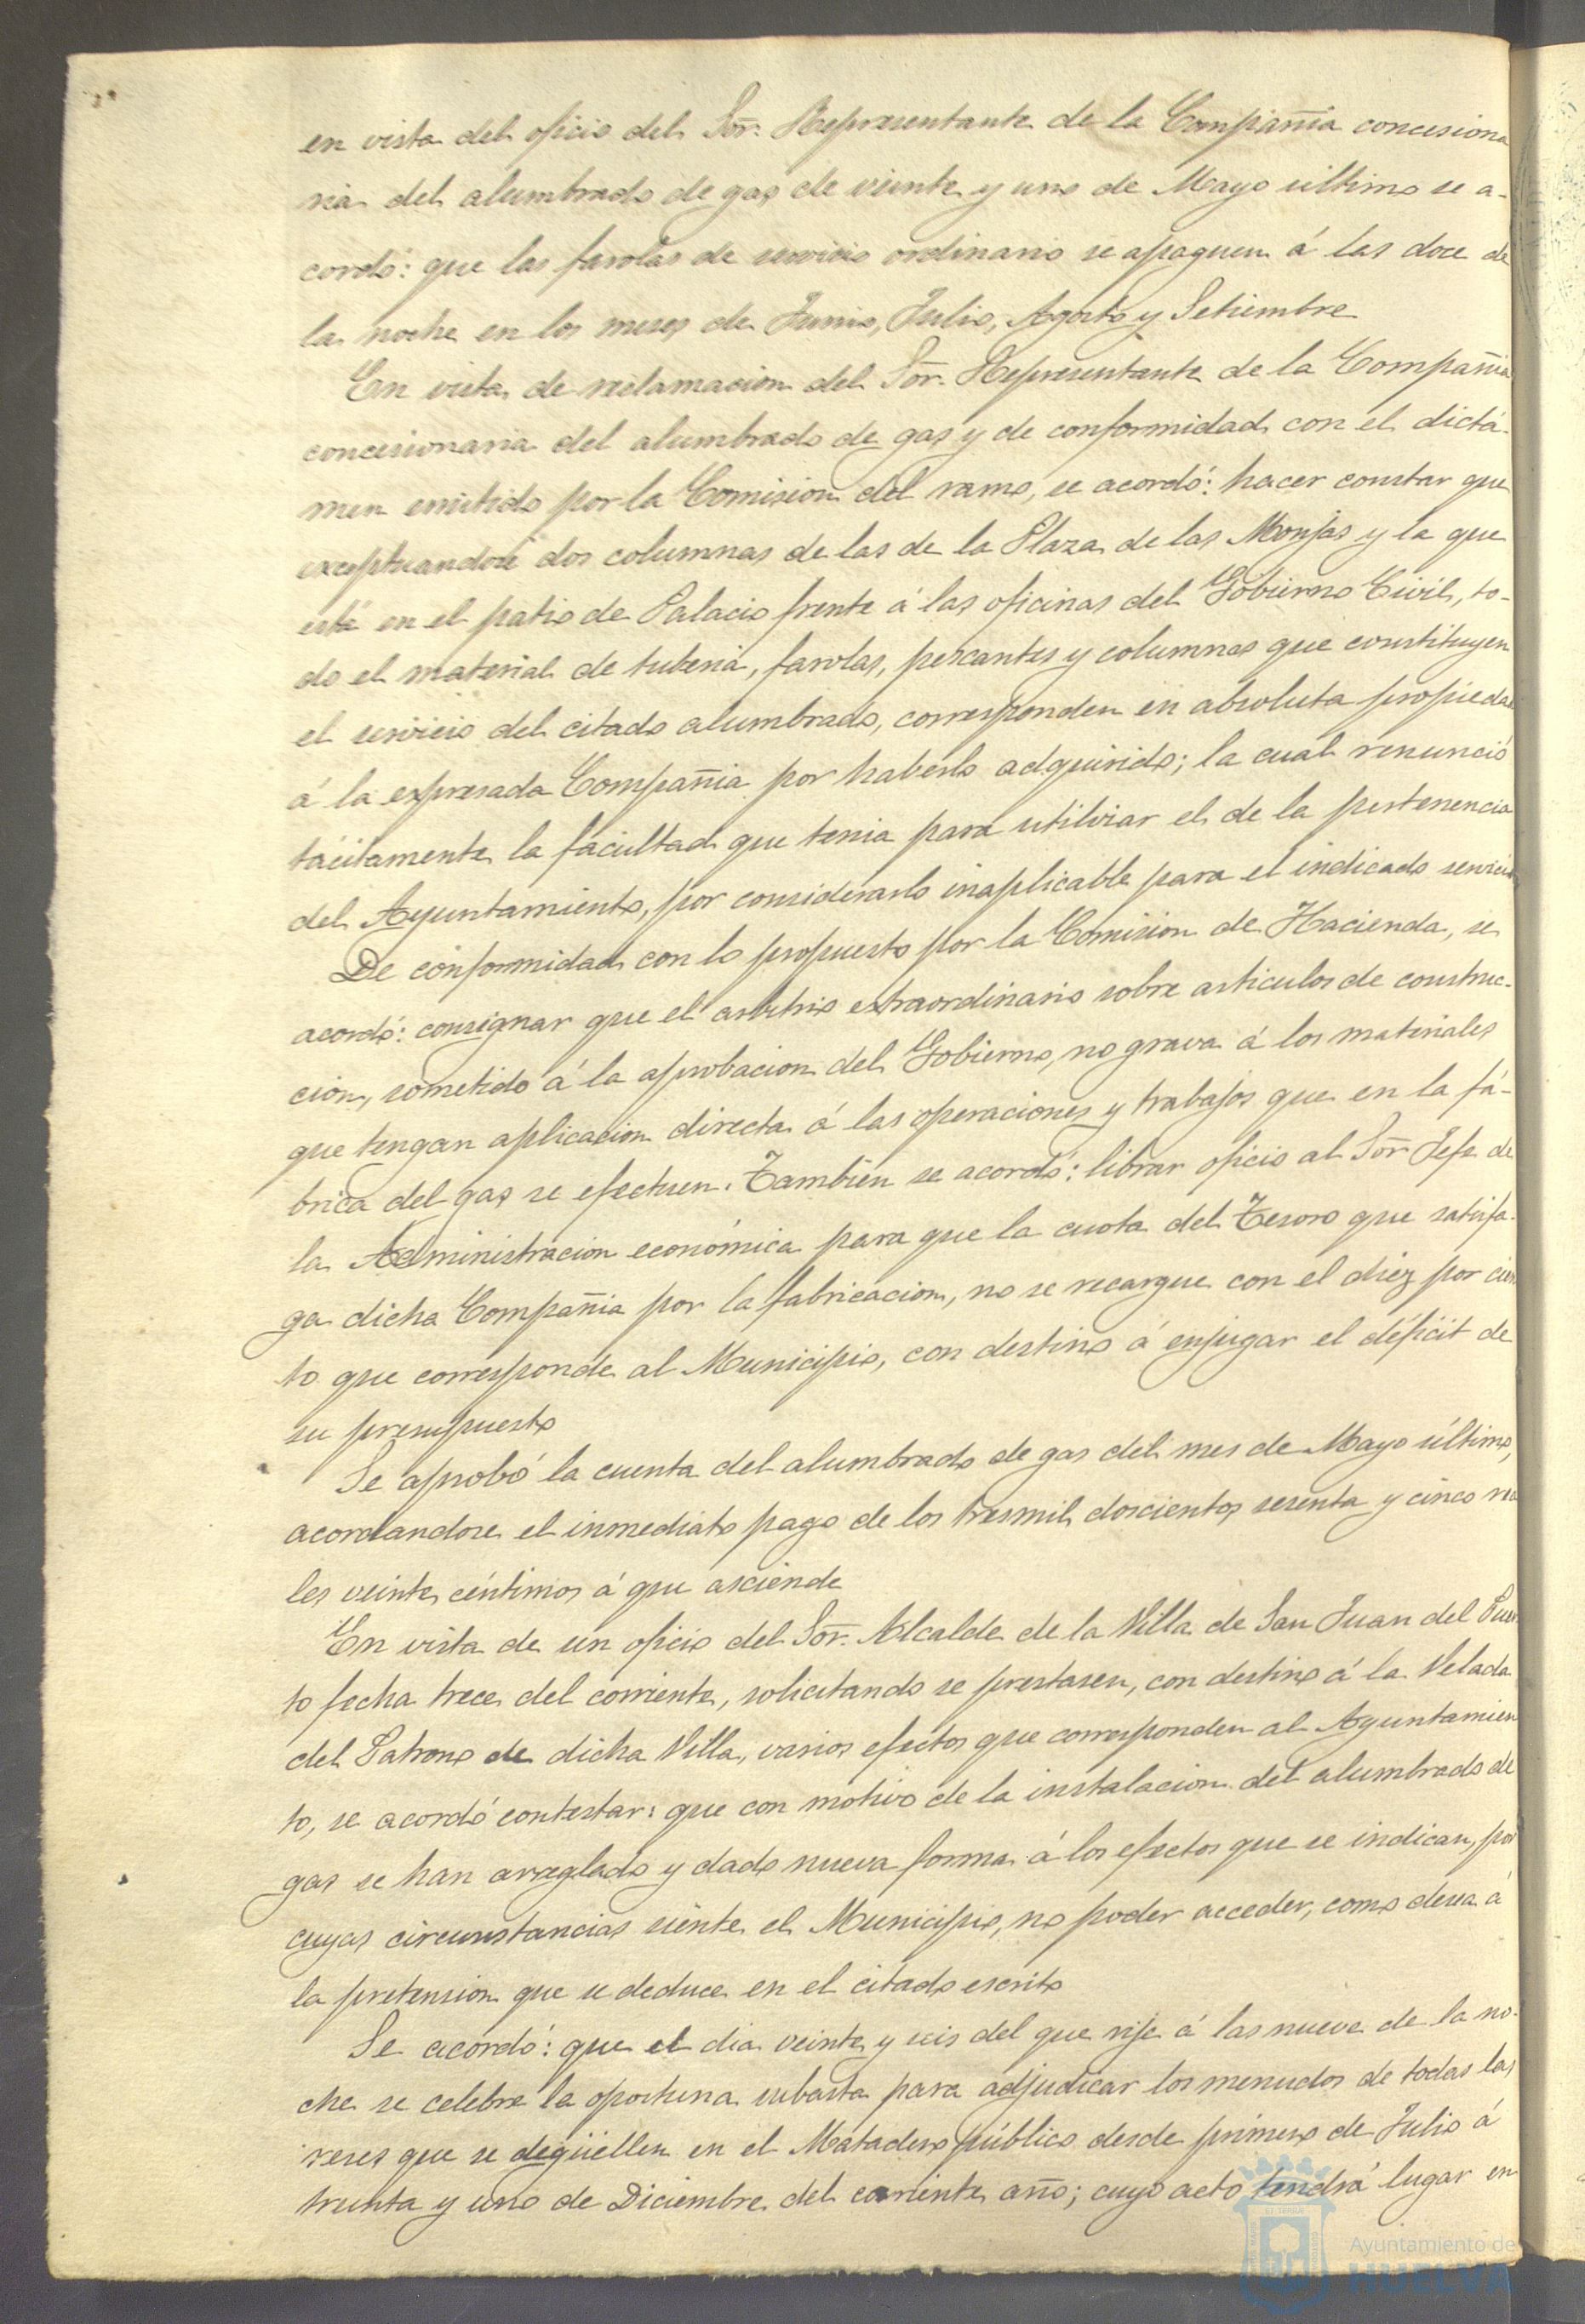 en vista del oficio del Sor. Representante de la Compañia concesiona
ria del alumbrado de gas de veinte y uno de Mayo último se a-
cordó: que las farolas de servicio ordinario se apaguen á las doce de
la noche en los meses de Junio, Julio, Agosto y Setiembre
En vista de reclamacion del Sor. Representante de la Compañia
concesionaria del alumbrado de gas y de conformidad con el dictá-
men emitido por la Comision del ramo, se acordó: hacer constar que
exceptuandose dos columnas de las de la Plaza de las Monjas y la que
está en el patio de Palacio frente á las oficinas del Gobierno Civil, to-
do el material de tuberia, farolas, pescantes y columnas que constituyen
el servicio del citado alumbrado, corresponden en absoluta propiedad
á la expresada Compañia por haberlo adquirido; la cual renunció
tácitamente la facultad que tenia para utilizar el de la pertenencia
del Ayuntamiento, por considerarlo inaplicable para el indicado servicio
De conformidad con lo propuesto por la Comision de Hacienda, se
acordó: consignar que el arbitrio extraordinario sobre articulos de construc-
cion, sometido á la aprobacion del Gobierno, no grava á los materiales
que tengan aplicacion directa á las operaciones y trabajos que en la fá-
brica del gas se efectuen. Tambien se acordó: librar oficio al Sor Jefe de
la Administracion económica para que la cuota del Tesoro que satisfa-
ga dicha Compañia por la fabricacion, no se recargue con el diez por cien
to que corresponde al Municipio, con destino á enjugar el déficit de
su presupuesto
Se aprobó la cuenta del alumbrado de gas del mes de Mayo último,
acordandose el inmediato pago de los tresmil doscientos sesenta y cinco rea
les veinte céntimos á que asciende
En vista de un oficio del Sor. Alcalde de la Villa de San Juan del Puer
to fecha trece del corriente, solicitando se prestasen, con destino á la Velada
del Patrono de dicha Villa, varios efectos que corresponden al Ayuntamien
to, se acordó contestar: que con motivo de la instalacion del alumbrado de
gas se han arreglado y dado nueva forma á los efectos que se indican, por
cuyas circunstancias siente el Municipio, no poder acceder, como desea á
la pretension que se deduce en el citado escrito
Se acordó: que el dia veinte y seis del que rije á las nueve de la no-
che se celebre la oportuna subasta para adjudicar los menudos de todas las
reses que se degüellen en el Matadero público desde primero de Julio á
treinta y uno de Diciembre del corriente año; cuyo acto tendrá lugar en
Ayuntamiento de
HUELVA